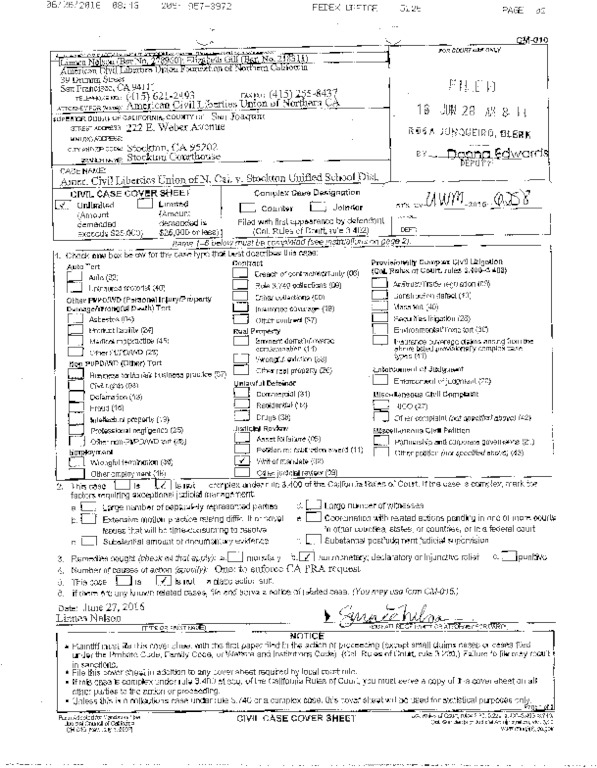 06/28/2016 08:45 209-957-3972 FEDEX OFFICE PAGE
CM-010
Linnea Nelson (Bar No. 278960); Elizabeth Gill (Bar No. 218311)
American Civil Liberties Union Foundation of Northern California
39 Drumm Street
San Francisco, CA 94111
TELEPHONE NO.: (415) 621-2493 FAX NO.: (415) 255-8437
ATTORNEY FOR (Name): American Civil Liberties Union of Northern CA
FOR COURT USE ONLY
FILED
16 JUN 28 AM 8:11
ROSA JUNQUEIRO, CLERK
BY Deputy
SUPERIOR COURT OF CALIFORNIA, COUNTY OF San Joaquin
STREET ADDRESS: 222 E. Weber Avenue
MAILING ADDRESS:
CITY AND ZIP CODE: Stockton, CA 95202
BRANCH NAME: Stockton Courthouse
CASE NAME:
Amer. Civil Liberties Union of N. Cal. v. Stockton Unified School Dist.
CIVIL CASE COVER SHEET
✓ Unlimited (Amount demanded exceeds $25,000)
Limited (Amount demanded is $25,000 or less)
Complex Case Designation
Counter Joinder
Filed with first appearance by defendant
(Cal. Rules of Court, rule 3.402)
DEPT:
Items 1–6 below must be completed (see instructions on page 2).
1. Check one box below for the case type that best describes this case:
Auto Tort
Auto (22)
Uninsured motorist (46)
Other PI/PD/WD (Personal Injury/Property Damage/Wrongful Death) Tort
Asbestos (04)
Product liability (24)
Medical malpractice (45)
Other PI/PD/WD (23)
Non-PI/PD/WD (Other) Tort
Business tort/unfair business practice (07)
Civil rights (08)
Defamation (13)
Fraud (16)
Intellectual property (19)
Professional negligence (25)
Other non-PI/PD/WD tort (35)
Employment
Wrongful termination (36)
Other employment (15)
Contract
Breach of contract/warranty (06)
Rule 3.740 collections (09)
Other collections (09)
Insurance coverage (18)
Other contract (37)
Real Property
Eminent domain/Inverse condemnation (14)
Wrongful eviction (33)
Other real property (26)
Unlawful Detainer
Commercial (31)
Residential (32)
Drugs (38)
Judicial Review
Asset forfeiture (05)
Petition re: arbitration award (11)
✓ Writ of mandate (02)
Other judicial review (39)
Provisionally Complex Civil Litigation
(Cal. Rules of Court, rules 3.400–3.403)
Antitrust/Trade regulation (03)
Construction defect (10)
Mass tort (40)
Securities litigation (28)
Environmental/Toxic tort (30)
Insurance coverage claims arising from the above listed provisionally complex case types (41)
Enforcement of Judgment
Enforcement of judgment (20)
Miscellaneous Civil Complaint
RICO (27)
Other complaint (not specified above) (42)
Miscellaneous Civil Petition
Partnership and corporate governance (21)
Other petition (not specified above) (43)
2. This case is ✓ is not complex under rule 3.400 of the California Rules of Court. If the case is complex, mark the
factors requiring exceptional judicial management:
a. Large number of separately represented parties
b. Extensive motion practice raising difficult or novel issues that will be time-consuming to resolve
c. Substantial amount of documentary evidence
d. Large number of witnesses
e. Coordination with related actions pending in one or more courts in other counties, states, or countries, or in a federal court
f. Substantial postjudgment judicial supervision
3. Remedies sought (check all that apply): a. monetary b. ✓ nonmonetary; declaratory or injunctive relief c. punitive
4. Number of causes of action (specify): One: to enforce CA PRA request
5. This case is ✓ is not a class action suit.
6. If there are any known related cases, file and serve a notice of related case. (You may use form CM-015.)
Date: June 27, 2016
Linnea Nelson
(TYPE OR PRINT NAME) (SIGNATURE OF PARTY OR ATTORNEY FOR PARTY)
NOTICE
• Plaintiff must file this cover sheet with the first paper filed in the action or proceeding (except small claims cases or cases filed
under the Probate Code, Family Code, or Welfare and Institutions Code). (Cal. Rules of Court, rule 3.220.) Failure to file may result
in sanctions.
• File this cover sheet in addition to any cover sheet required by local court rule.
• If this case is complex under rule 3.400 et seq. of the California Rules of Court, you must serve a copy of this cover sheet on all
other parties to the action or proceeding.
• Unless this is a collections case under rule 3.740 or a complex case, this cover sheet will be used for statistical purposes only.
Page 1 of 2
Form Adopted for Mandatory Use
Judicial Council of California
CM-010 [Rev. July 1, 2007]
CIVIL CASE COVER SHEET